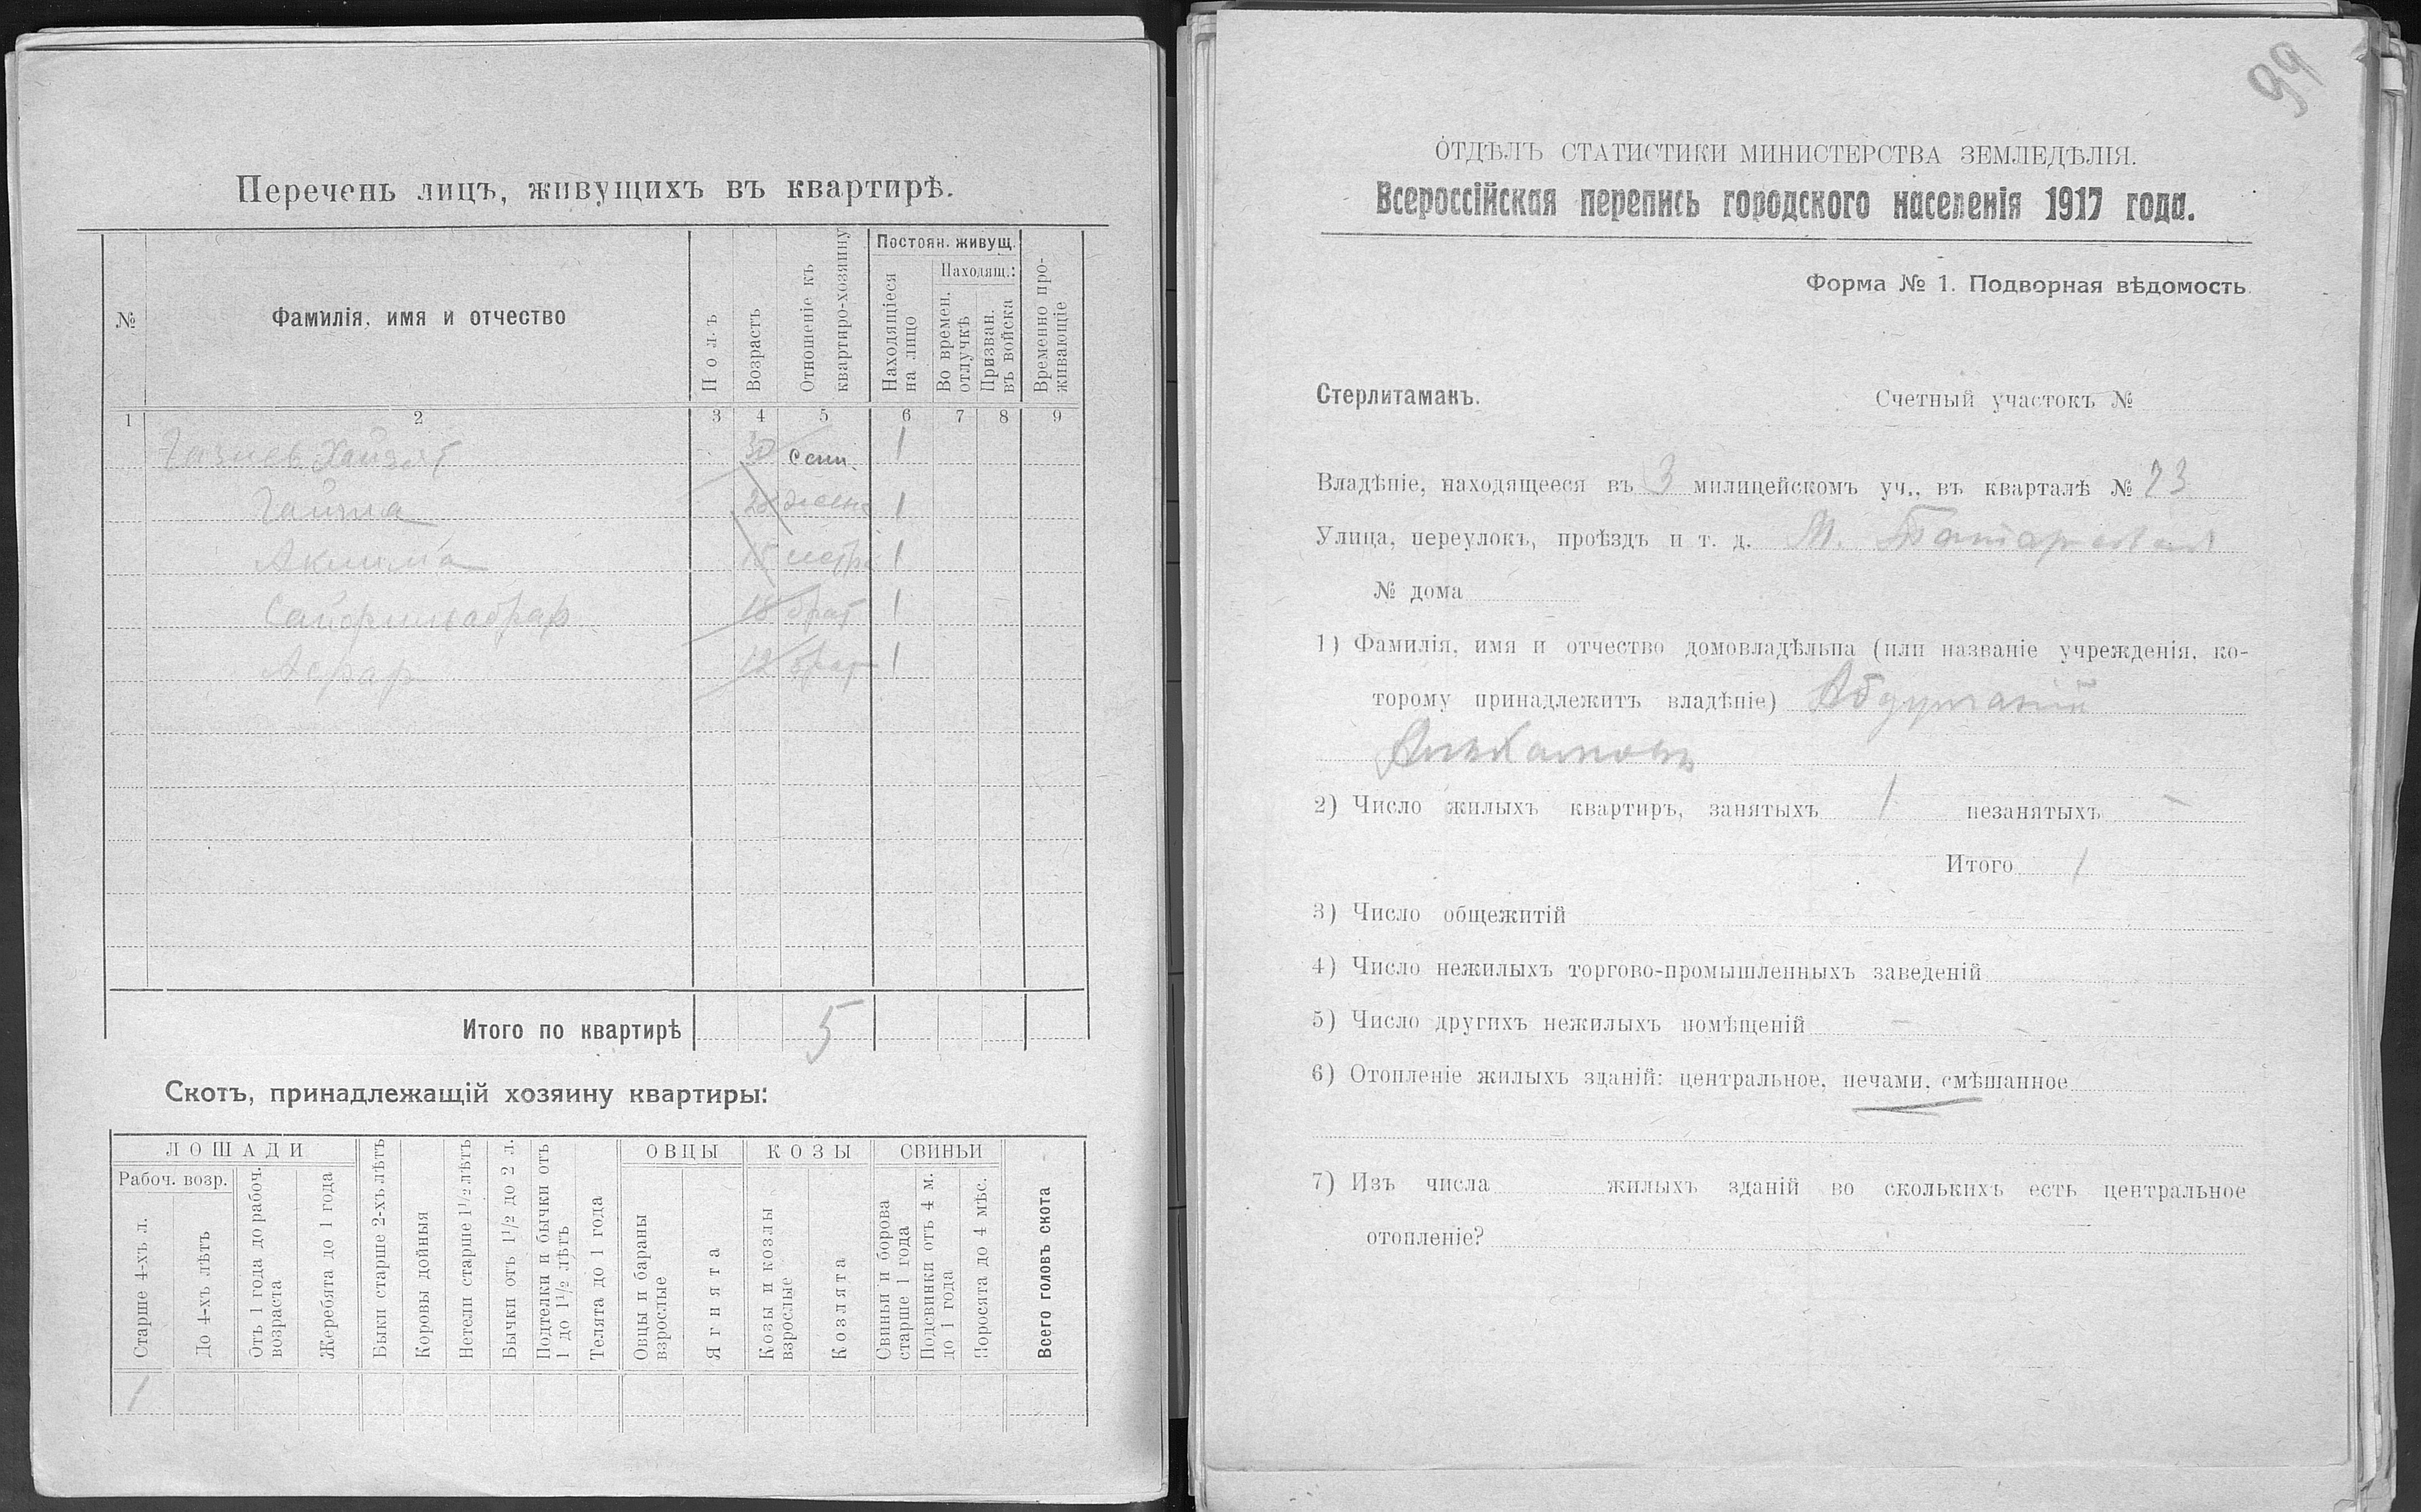 Перечень лицъ, живущихъ въ квартирѣ.
№
Фамилія, имя и отчество
Полъ
Возрастъ
Отношеніе къ квартиро-хозяину
Постоян. живущ.
Находящіеся на лицо
Находящ.:
Во времен. отлучкѣ
Призван. въ войска
Временно про-живающіе
1 2 3 4 5 6 7 8 9
30 1
28 жена 1
Аклима 18 сестра 1
18 братъ 1
Асрар 12 братъ 1
Итого по квартирѣ 5
Скотъ, принадлежащій хозяину квартиры:
ЛОШАДИ
Рабоч. возр.
Старше 4-хъ л.
До 4-хъ лѣтъ
Отъ 1 года до рабоч. возраста
Жеребята до 1 года
Быки старше 2-хъ лѣтъ
Коровы дойныя
Нетели старше 1 1/2 лѣтъ
Бычки отъ 1 1/2 до 2 л.
Подтелки и бычки отъ 1 до 1 1/2 лѣтъ
Телята до 1 года
ОВЦЫ
Овцы и бараны взрослые
Ягнята
КОЗЫ
Козы и козлы взрослые
Козлята
СВИНЬИ
Свиньи и борова старше 1 года
Подсвинки отъ 4 м. до 1 года
Поросята до 4 мѣс.
Всего головъ скота
1
99
ОТДѢЛЪ СТАТИСТИКИ МИНИСТЕРСТВА ЗЕМЛЕДѢЛІЯ.
Всероссійская перепись городского населенія 1917 года.
Форма № 1. Подворная вѣдомость.
Стерлитамакъ. Счетный участокъ №
Владѣніе, находящееся въ 3 милицейскомъ уч., въ кварталѣ № 23
Улица, переулокъ, проѣздъ и т. д. М. Татарская
№ дома
1) Фамилія, имя и отчество домовладѣльца (или названіе учрежденія, ко-
торому принадлежитъ владѣніе)
2) Число жилыхъ квартиръ, занятыхъ 1 незанятыхъ -
Итого 1
3) Число общежитій
4) Число нежилыхъ торгово-промышленныхъ заведеній
5) Число другихъ нежилыхъ помѣщеній -
6) Отопленіе жилыхъ зданій: центральное, печами, смѣшанное
7) Изъ числа жилыхъ зданій во сколькихъ есть центральное
отопленіе?